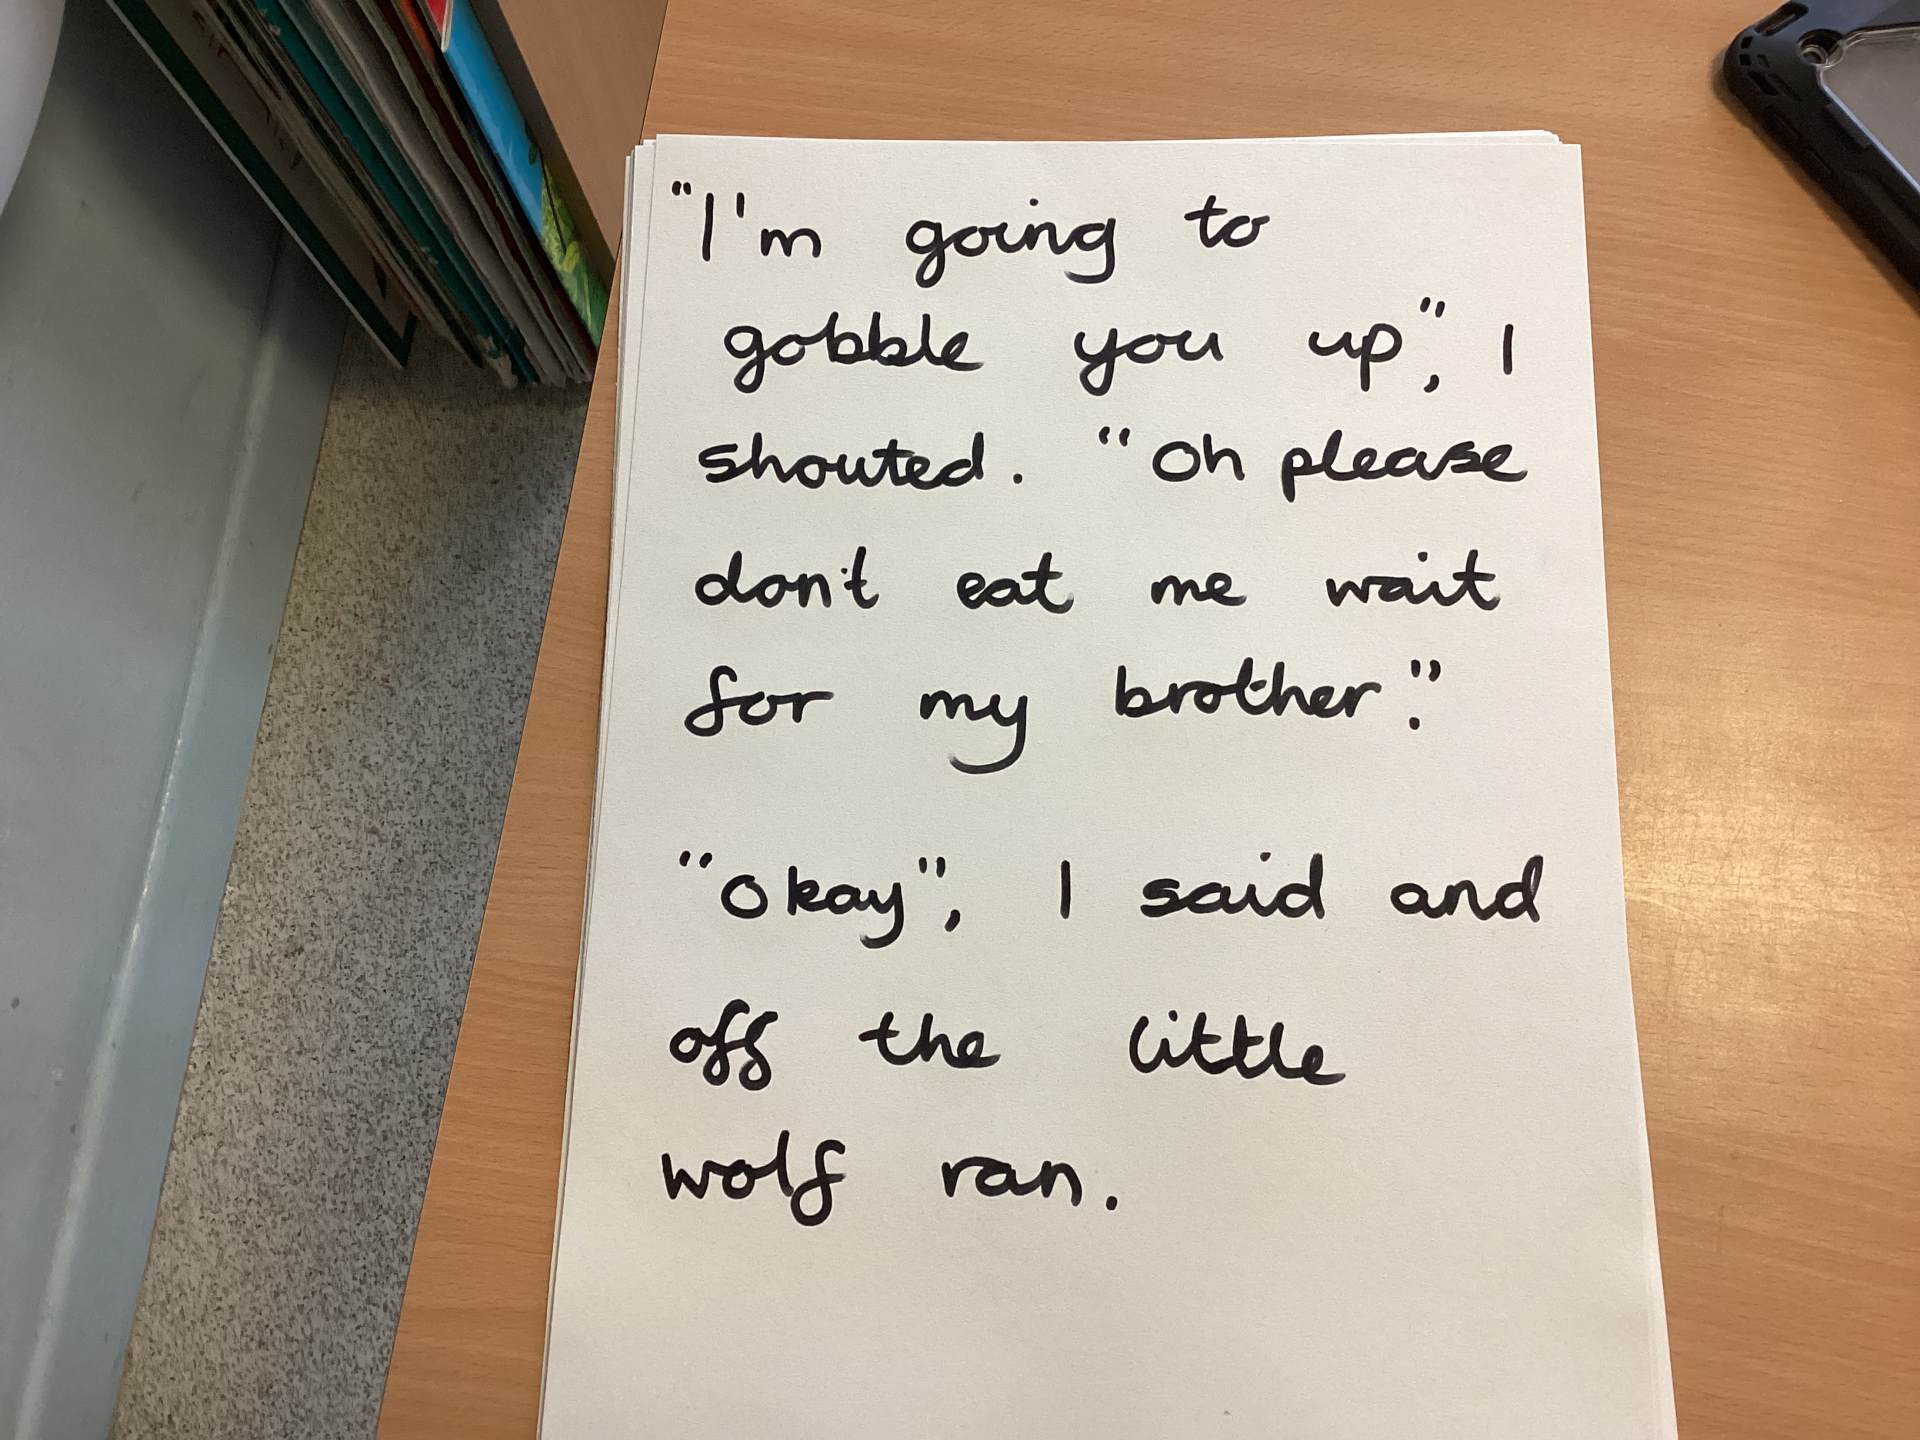 "I'm going to
gobble you up", I
shouted. "Oh please
don't eat me wait
for my brother."
"Okay", I said and
off the little
wolf ran.